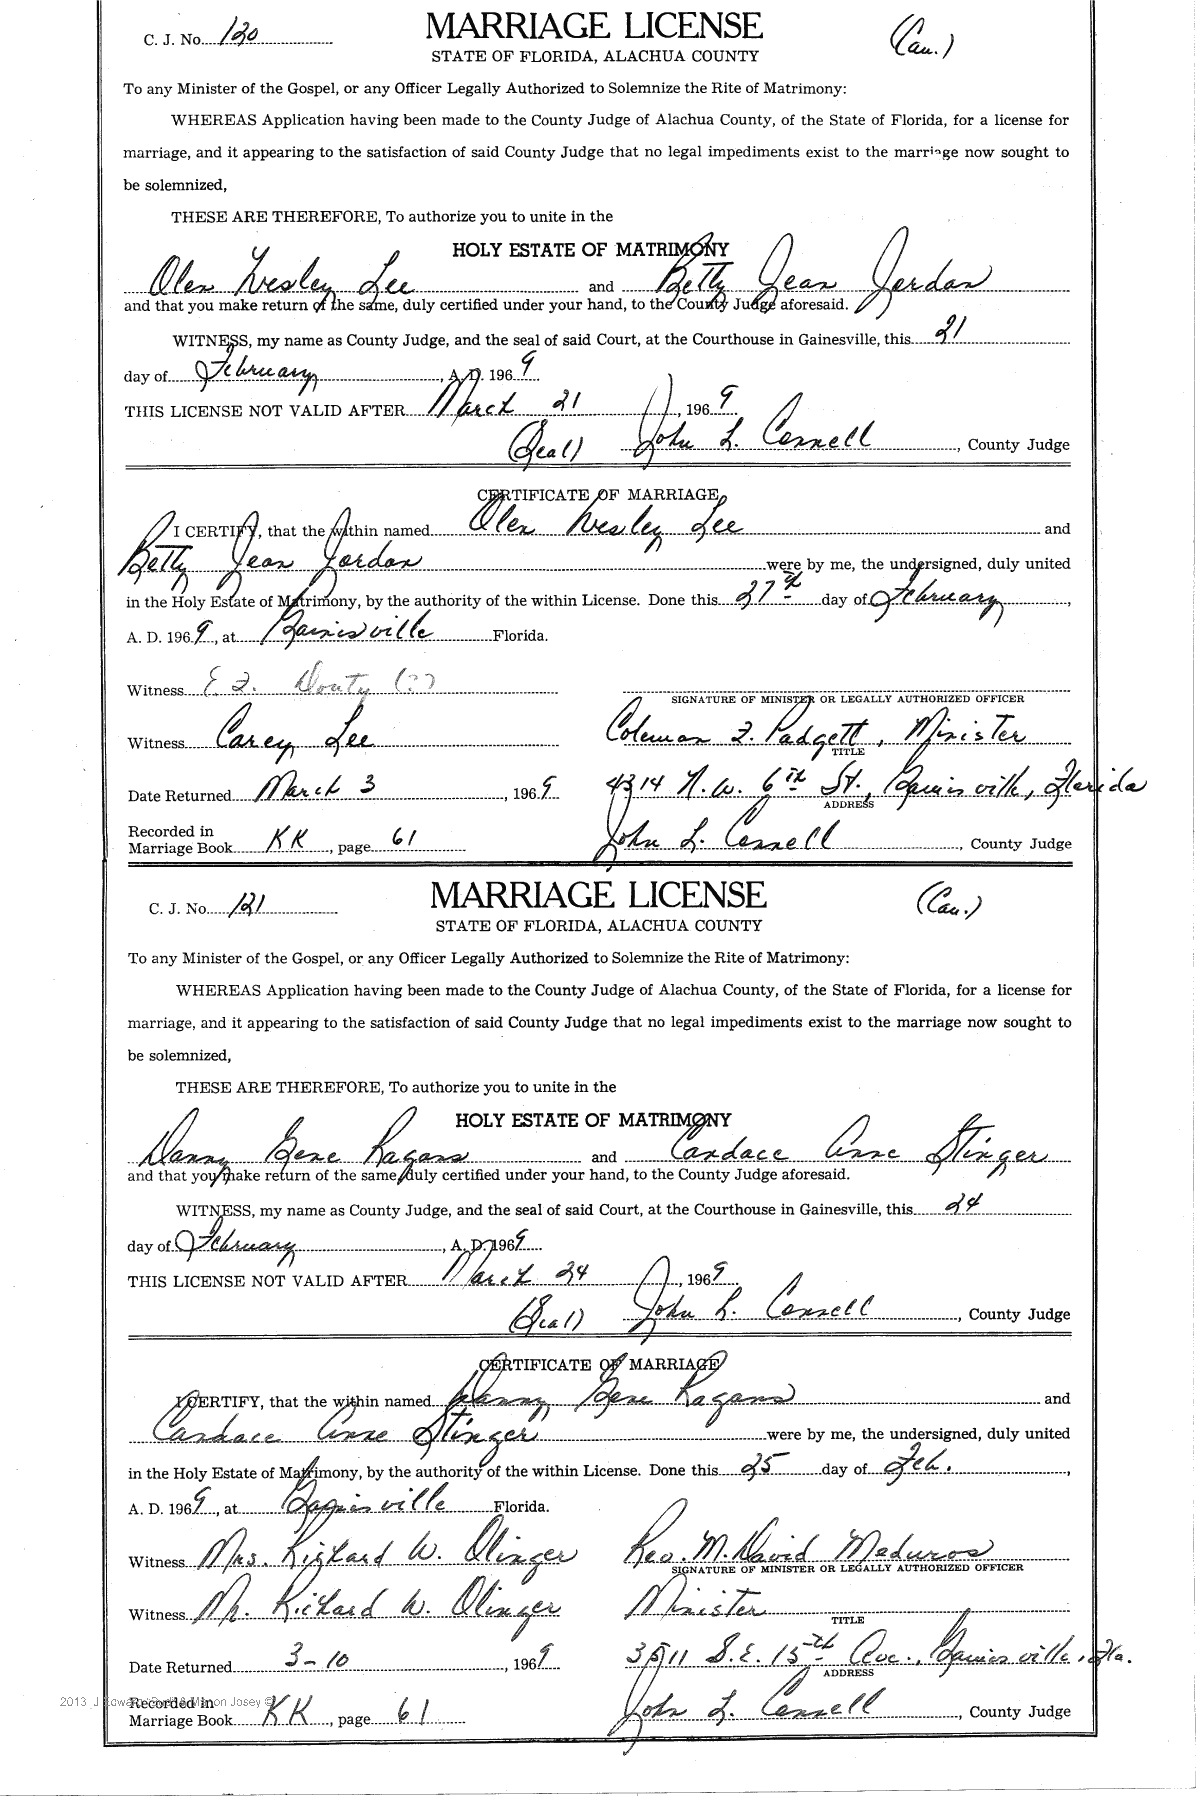 C. J. No. 120
MARRIAGE LICENSE
(Cau.)
STATE OF FLORIDA, ALACHUA COUNTY
To any Minister of the Gospel, or any Officer Legally Authorized to Solemnize the Rite of Matrimony:
WHEREAS Application having been made to the County Judge of Alachua County, of the State of Florida, for a license for
marriage, and it appearing to the satisfaction of said County Judge that no legal impediments exist to the marriage now sought to
be solemnized,
THESE ARE THEREFORE, To authorize you to unite in the
HOLY ESTATE OF MATRIMONY
Olen Wesley Lee and Betty Jean Jordan
and that you make return of the same, duly certified under your hand, to the County Judge aforesaid.
WITNESS, my name as County Judge, and the seal of said Court, at the Courthouse in Gainesville, this 21
day of February, A. D. 1969
THIS LICENSE NOT VALID AFTER March 21, 1969
(Seal) John L. Connell, County Judge
CERTIFICATE OF MARRIAGE
I CERTIFY, that the within named Olen Wesley Lee and
Betty Jean Jordan were by me, the undersigned, duly united
in the Holy Estate of Matrimony, by the authority of the within License. Done this 27th day of February,
A. D. 1969, at Gainesville Florida.
Witness E. Z. Douty (?)
SIGNATURE OF MINISTER OR LEGALLY AUTHORIZED OFFICER
Witness Carey Lee Coleman Z. Padgett, Minister
TITLE
Date Returned March 3, 1969 4314 N.W. 6th St., Gainesville, Florida
ADDRESS
Recorded in
Marriage Book KK, page 61 John L. Connell, County Judge
C. J. No. 121
MARRIAGE LICENSE
(Cau.)
STATE OF FLORIDA, ALACHUA COUNTY
To any Minister of the Gospel, or any Officer Legally Authorized to Solemnize the Rite of Matrimony:
WHEREAS Application having been made to the County Judge of Alachua County, of the State of Florida, for a license for
marriage, and it appearing to the satisfaction of said County Judge that no legal impediments exist to the marriage now sought to
be solemnized,
THESE ARE THEREFORE, To authorize you to unite in the
HOLY ESTATE OF MATRIMONY
Danny Gene Ragans and Candace Anne Stinger
and that you make return of the same, duly certified under your hand, to the County Judge aforesaid.
WITNESS, my name as County Judge, and the seal of said Court, at the Courthouse in Gainesville, this 24
day of February, A. D. 1969
THIS LICENSE NOT VALID AFTER March 24, 1969
(Seal) John L. Connell, County Judge
CERTIFICATE OF MARRIAGE
I CERTIFY, that the within named Danny Gene Ragans and
Candace Anne Stinger were by me, the undersigned, duly united
in the Holy Estate of Matrimony, by the authority of the within License. Done this 25 day of Feb.,
A. D. 1969, at Gainesville Florida.
Witness Mrs. Richard W. Olinger Rev. M. David Meduros
SIGNATURE OF MINISTER OR LEGALLY AUTHORIZED OFFICER
Witness Mr. Richard W. Olinger Minister
TITLE
Date Returned 3-10, 1969 3511 S.E. 15th Ave., Gainesville, Fla.
ADDRESS
Recorded in
Marriage Book KK, page 61 John L. Connell, County Judge
2013 Josey ©